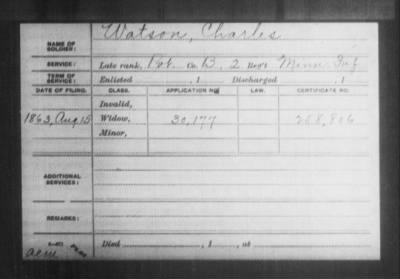 Watson, Charles
NAME OF SOLDIER:
SERVICE: Late rank, Pvt. Co. B, 2 Reg't Minn. Inf
TERM OF SERVICE: Enlisted , 1 Discharged , 1
DATE OF FILING. CLASS. APPLICATION NO. LAW. CERTIFICATE NO.
Invalid,
1863, Aug 15 Widow, 30,177
Minor,
ADDITIONAL SERVICES:
REMARKS:
Died , 1 , at